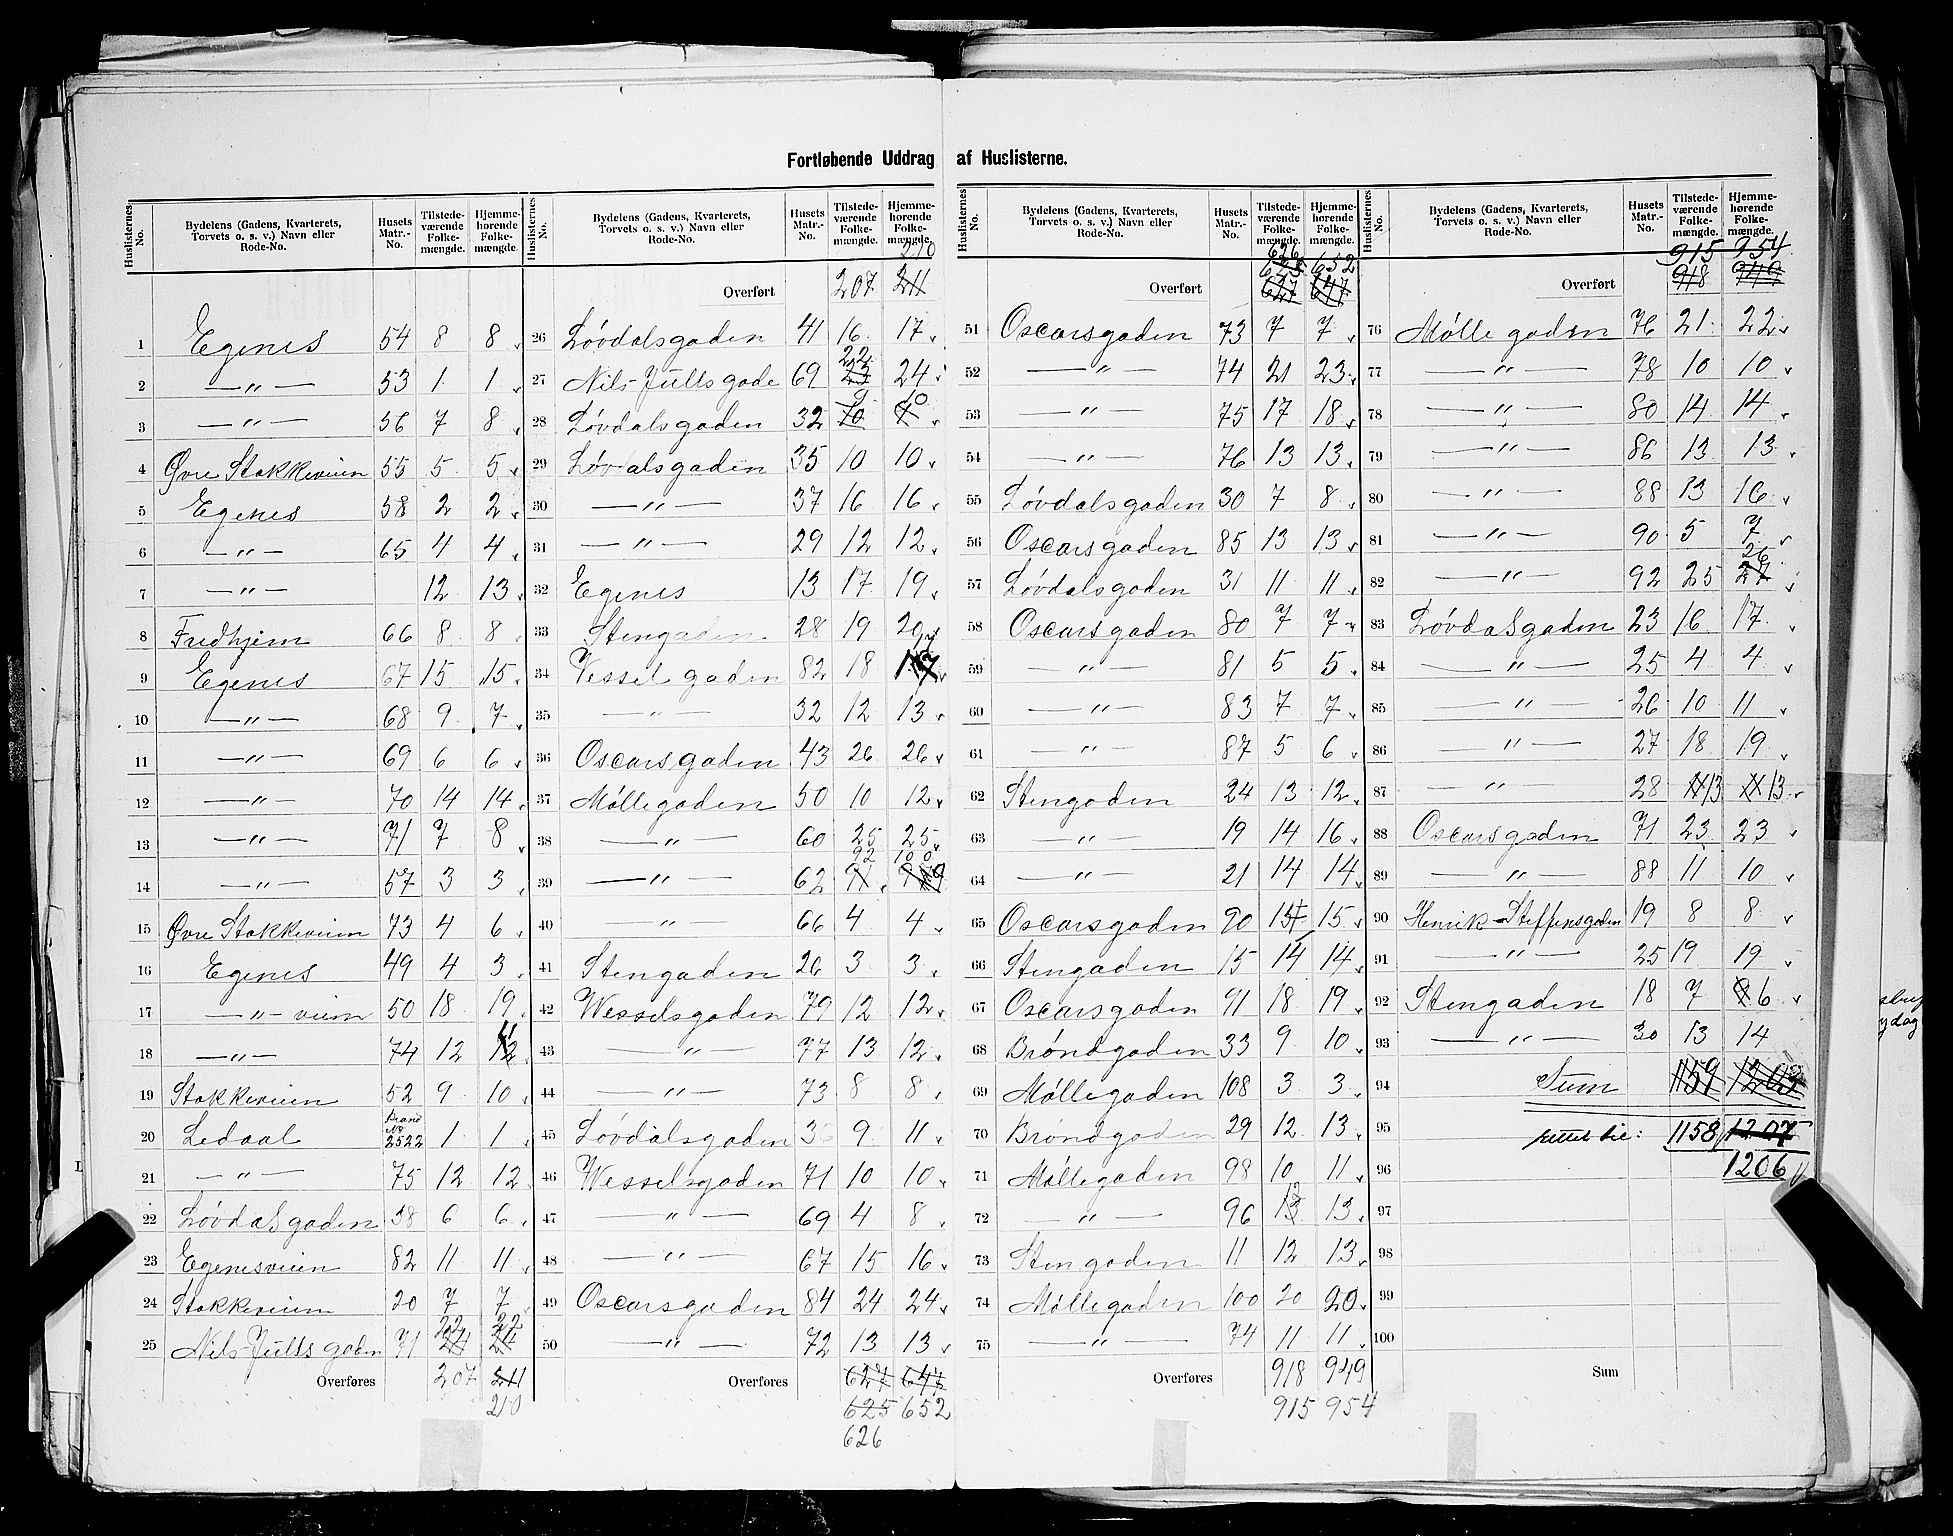 Fortløbende Uddrag af Huslisterne.
Huslisternes No. | Bydelens (Gadens, Kvarterets, Torvets o. s. v.) Navn eller Rode-No. | Husets Matr.-No. | Tilstedeværende Folkemængde. | Hjemmehørende Folkemængde.
1 Egenes 54 8 8
2 —"— 53 1 1
3 —"— 56 7 8
4 Øvre Stokkeveien 55 5 5
5 Egenes 58 2 2
6 —"— 65 4 4
7 —"— 12 13
8 Fredhjem 66 8 8
9 Egenes 67 15 15
10 —"— 68 9 7
11 —"— 69 6 6
12 —"— 70 14 14
13 —"— 71 7 8
14 —"— 57 3 3
15 Øvre Stokkeveien 73 4 6
16 Egenes 49 4 3
17 —"— veien 50 18 19
18 —"— 74 12 11
19 Stokkeveien 52 9 10
20 Ledaal Brand No 2522 1 1
21 —"— 75 12 12
22 Løvdalsgaden 38 6 6
23 Egenesveien 82 11 11
24 Stokkeveien 20 7 7
25 Nils Juelsgaden 71 22 22
Overføres 207 211
210
Huslisternes No. | Bydelens (Gadens, Kvarterets, Torvets o. s. v.) Navn eller Rode-No. | Husets Matr.-No. | Tilstedeværende Folkemængde. | Hjemmehørende Folkemængde.
210
Overført 207 211
26 Løvdalsgaden 41 16 17
27 Nils Juelsgade 69 22 23 24
28 Løvdalsgaden 32 9 10 10
29 Løvdalsgaden 35 10 10
30 —"— 37 16 16
31 —"— 29 12 12
32 Egenes 13 17 19
33 Stengaden 28 19 20
34 Vesselgaden 82 18
35 —"— 32 12 13
36 Oscarsgaden 43 26 26
37 Møllegaden 50 10 12
38 —"— 60 25 25
39 —"— 62 92 91 100
40 —"— 66 4 4
41 Stengaden 26 3 3
42 Wesselsgaden 79 12 12
43 —"— 77 13 12
44 —"— 73 8 8
45 Løvdalsgaden 36 9 11
46 Wesselsgaden 71 10 10
47 —"— 69 4 8
48 —"— 67 15 16
49 Oscarsgaden 84 24 24
50 —"— 72 13 13
Overføres 627 647
625 652
626
Huslisternes No. | Bydelens (Gadens, Kvarterets, Torvets o. s. v.) Navn eller Rode-No. | Husets Matr.-No. | Tilstedeværende Folkemængde. | Hjemmehørende Folkemængde.
626
625 652
Overført 627 647
51 Oscarsgaden 73 7 7
52 —"— 74 21 23
53 —"— 75 17 18
54 —"— 76 13 13
55 Løvdalsgaden 30 7 8
56 Oscarsgaden 85 13 13
57 Løvdalsgaden 31 11 11
58 Oscarsgaden 80 7 7
59 —"— 81 5 5
60 —"— 83 7 7
61 —"— 87 5 6
62 Stengaden 24 13 12
63 —"— 19 14 16
64 —"— 21 14 14
65 Oscarsgaden 90 15
66 Stengaden 15 14 14
67 Oscarsgaden 91 18 19
68 Brøndgaden 33 9 10
69 Møllegaden 108 3 3
70 Brøndgaden 29 12 13
71 Møllegaden 98 10 11
72 —"— 96 12 13 13
73 Stengaden 11 12 13
74 Møllegaden 100 20 20
75 —"— 74 11 11
Overføres 918 949
915 954
Huslisternes No. | Bydelens (Gadens, Kvarterets, Torvets o. s. v.) Navn eller Rode-No. | Husets Matr.-No. | Tilstedeværende Folkemængde. | Hjemmehørende Folkemængde.
915 954
Overført 918 949
76 Møllegaden 76 21 22
77 —"— 78 10 10
78 —"— 80 14 14
79 —"— 86 13 13
80 —"— 88 13 16
81 —"— 90 5 7
82 —"— 92 25 26 27
83 Løvdalsgaden 23 16 17
84 —"— 25 4 4
85 —"— 26 10 11
86 —"— 27 18 19
87 —"— 28 13 13
88 Oscarsgaden 71 23 23
89 —"— 88 11 10
90 Henrik Steffensgaden 19 8 8
91 —"— 25 19 19
92 Stengaden 18 7 6
93 —"— 30 13 14
94 Sum 1159 1203
95 rettet til: 1158 1207
96 1206
97
98
99
100
Sum